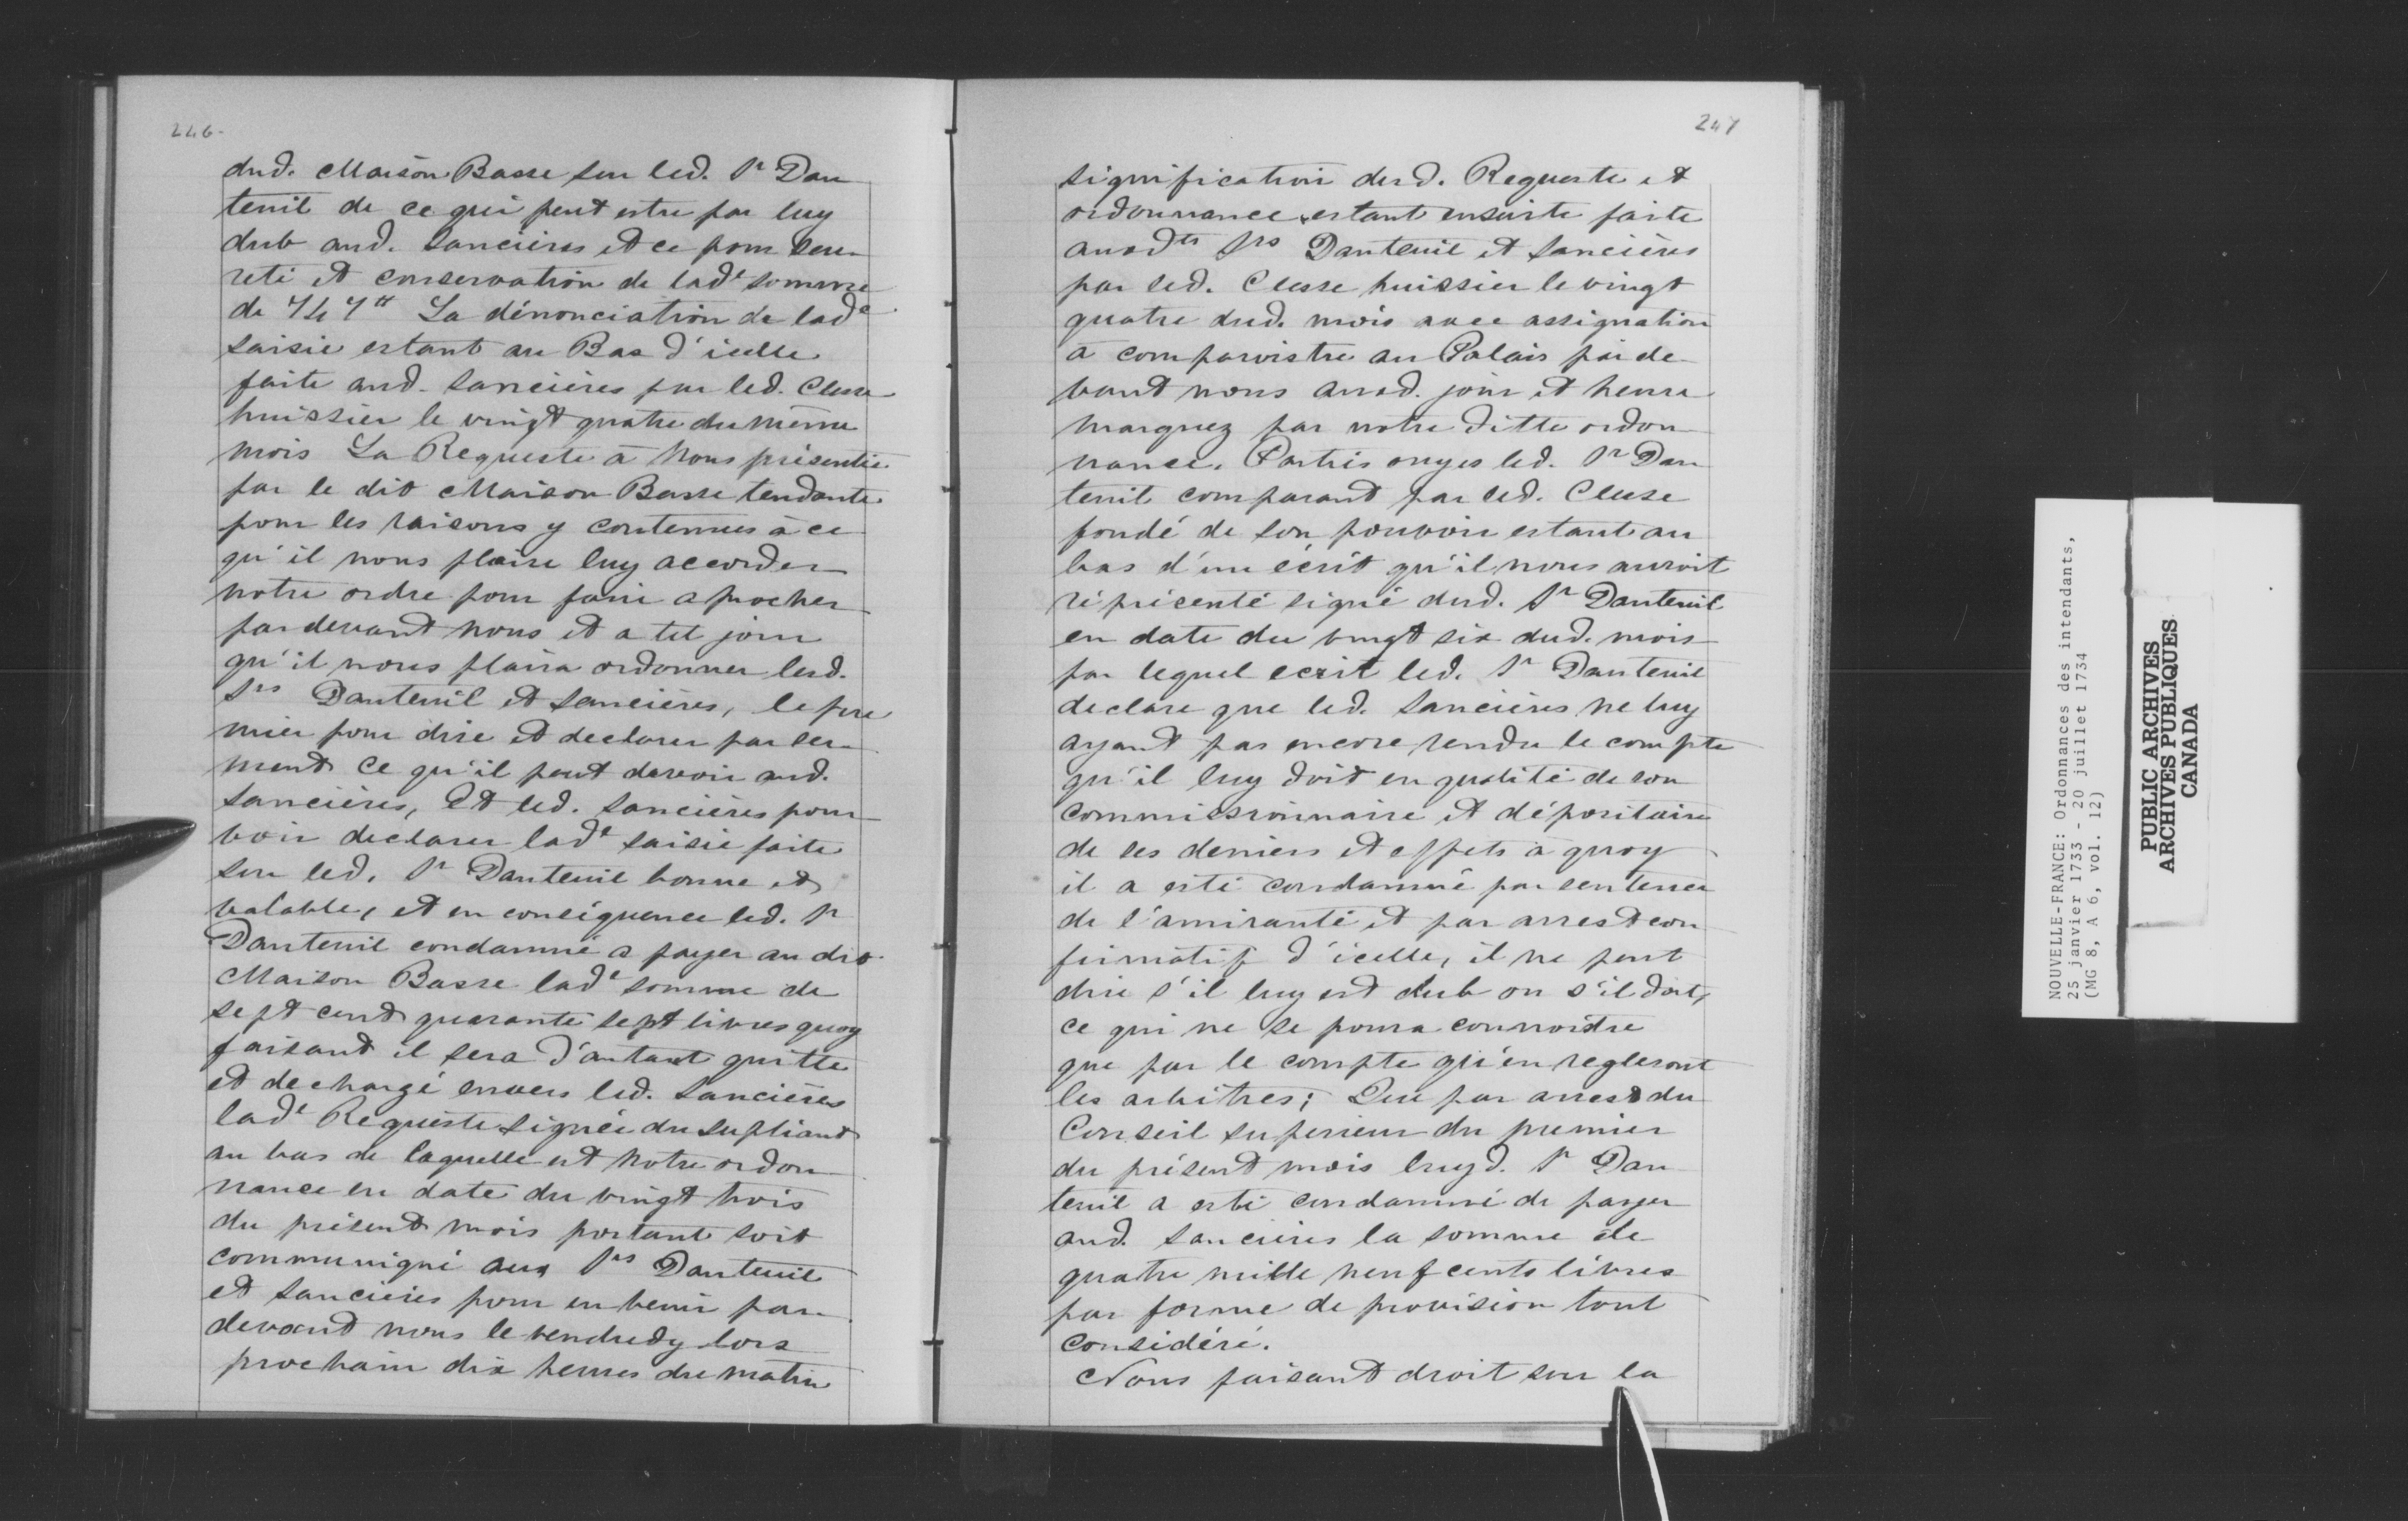 246.
dud. Maison Basse sur led. Sr Dau
teuil de ce qui peut estre par luy
dub aud. Sancières et ce pour seu-
reté et conservation de lade somme
de 747tt La dénonciation de lade
saisie estant au Bas d'icelle
faite aud. Sancières par led. Clesse
huissier le vingt quatre du même
mois La Requeste à Nous présentée
par le dit Maison Basse tendante
pour les raisons y contenues à ce
qu'il nous plaise luy accorder
notre ordre pour faire aprocher
pardevant nous et a tel jour
qu'il nous plaira ordonner lesd.
Srs Dauteuil et Sancières, le pre
mier pour dire et declarer par ser-
ment ce qu'il peut devoir aud.
Sancières, Et led. Sancières pour
voir declarer lade saisie faite
sur led. Sr Dauteuil bonne et
valable, et en conséquence led. Sr
Dauteuil condamné a payer au dit
Maison Basse lade somme de
sept cent quarante sept livres quoy
faisant il sera d'autant quitte
et dechargé envers led. Sancières
lade Requeste signée du supliant
au bas de laquelle est Notre ordon
nance en date du vingt trois
du présent mois portant soit
communiqué aux Srs Dauteuil
et Sancières pour en venir par-
devant nous le vendredy lors
prochain dix heures du matin
247
signification desd. Requeste et
ordonnance estant ensuite faite
auxdts Srs Dauteuil et Sancières
par led. Clesse huissier le vingt
quatre dud. mois avec assignation
à comparoistre au Palais par de-
vant nous auxd. jour et heure
marquez par notre ditte ordon
nance. Parties ouyes led. Sr Dau
teuil comparant par led. Clesse
fondé de son pouvoir estant au
bas d'un écrit qu'il nous auroit
réprésenté signé dud. Sr Dauteuil
en date du vingt six dud. mois
par lequel ecrit led. Sr Dauteuil
declare que led. Sancières ne luy
ayant pas encore rendu le compte
qu'il luy doit en qualité de son
commissionnaire et dépositaire
de ses deniers et effets à quoy
il a esté condamné par sentence
de l'amirauté et par arrest con
firmatif d'icelle, il ne peut
dire s'il luy est dub ou s'il doit,
ce qui ne se poura connoistre
que par le compte qu'en regleront
les arbitres; Que par arrest du
Conseil superieur du premier
du présent mois luyd. Sr Dau
teuil a esté condamné de payer
aud. Sancières la somme de
quatre mille neuf cents livres
par forme de provision tout
considéré.
Nous faisant droit sur la
NOUVELLE-FRANCE: Ordonnances des intendants,
25 janvier 1733 - 20 juillet 1734
(MG 8, A 6, vol. 12)
PUBLIC ARCHIVES
ARCHIVES PUBLIQUES
CANADA